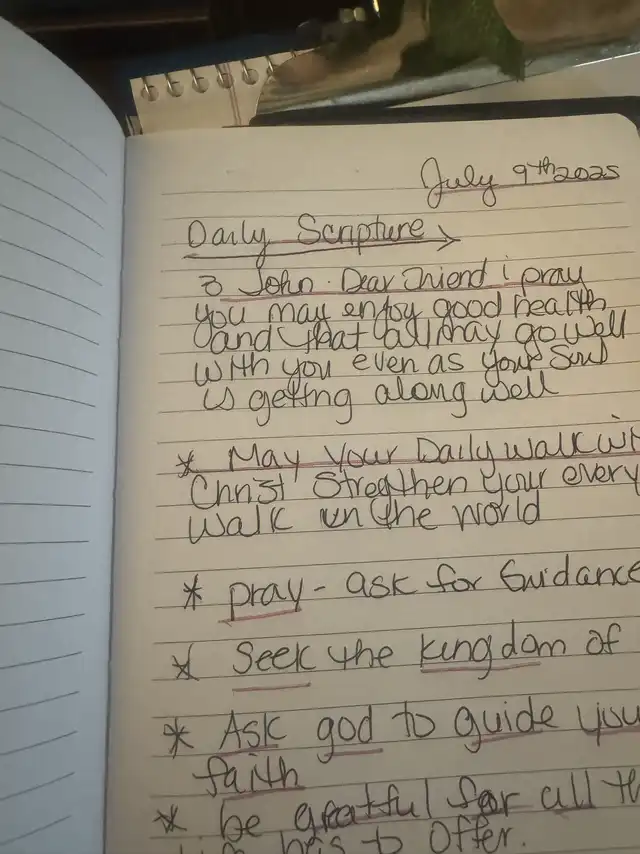 July 9th 2025
Daily Scripture
3 John. Dear friend i pray
you may enjoy good health
and that all may go well
with you even as your Soul
is getting along well
* May your Daily walk wit
Christ Stregthen your every
walk in the world
* pray - ask for Guidance
* Seek the kingdom of
* Ask god to guide you
faith
* be greatful for all th
has to offer.